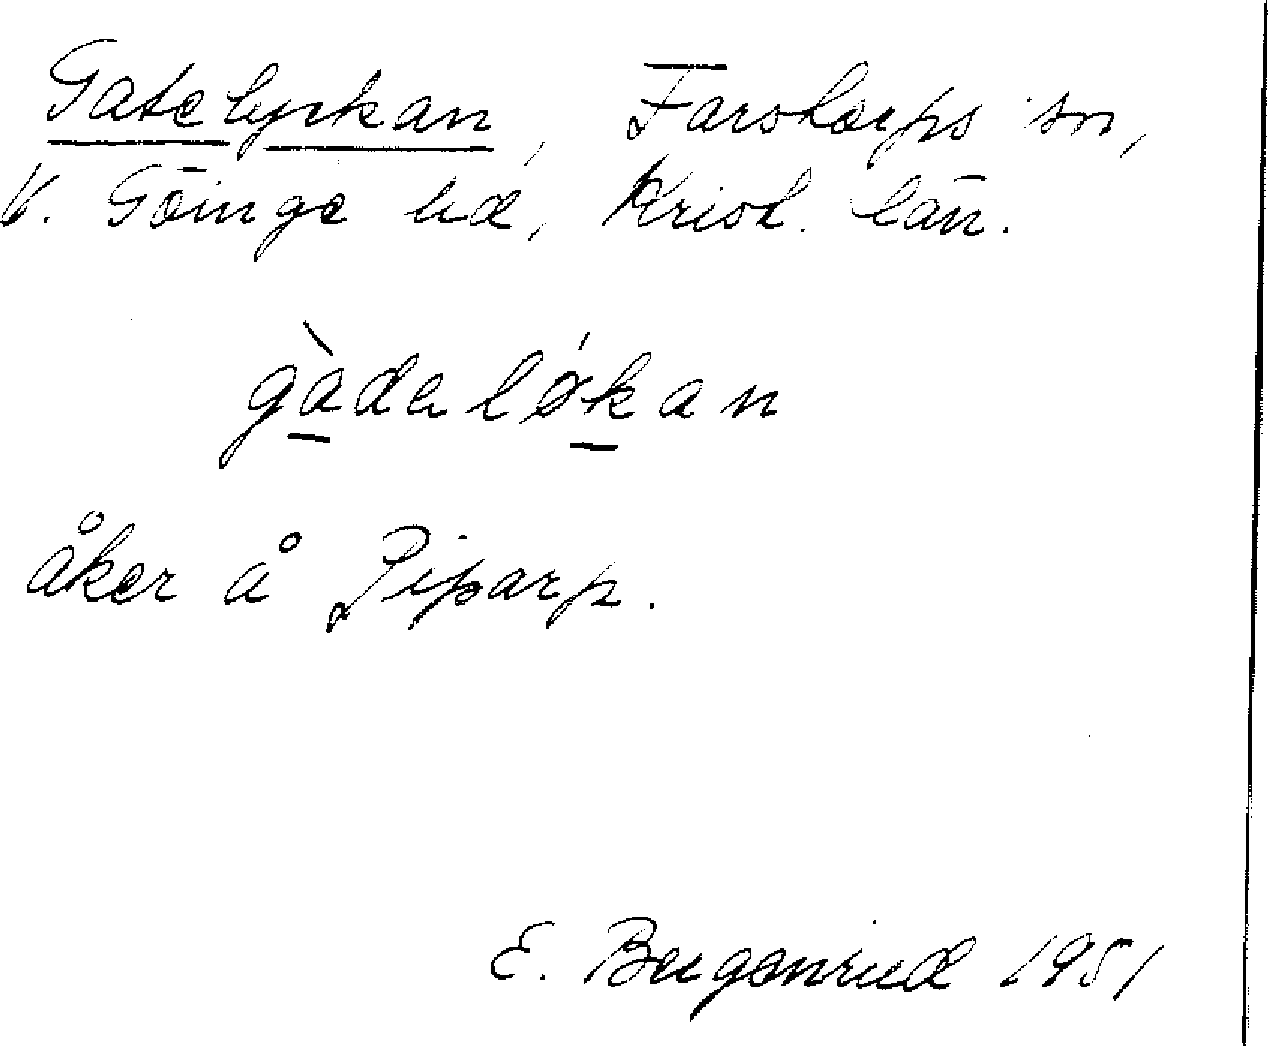 Gatelyckan, Farstorps sn,
V. Göinge hd, Krist. län.
gàdaløkan
åker å Piparp.
E. 1951